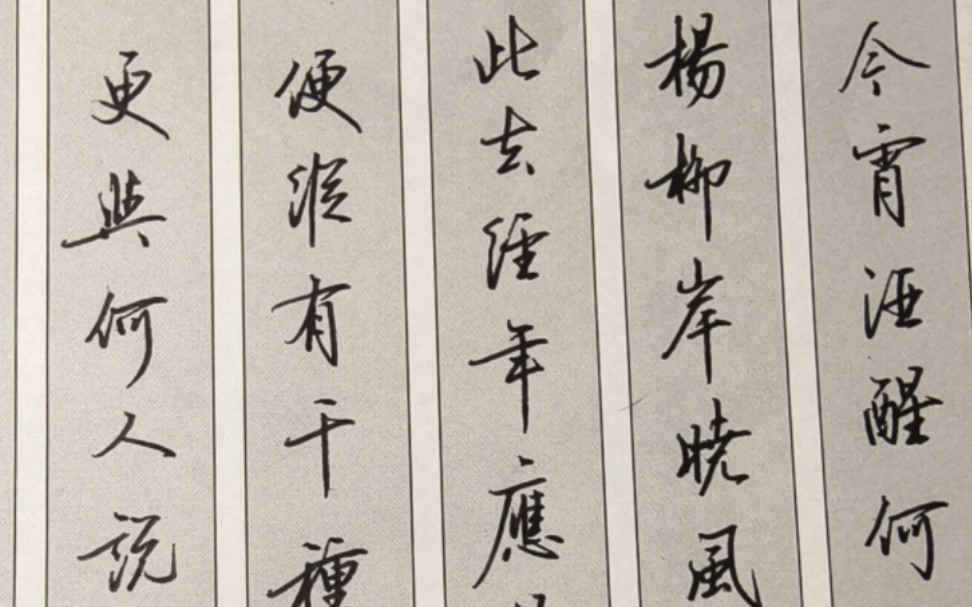 今宵酒醒何
楊柳岸曉風
此去經年應
便縱有千種
更與何人説